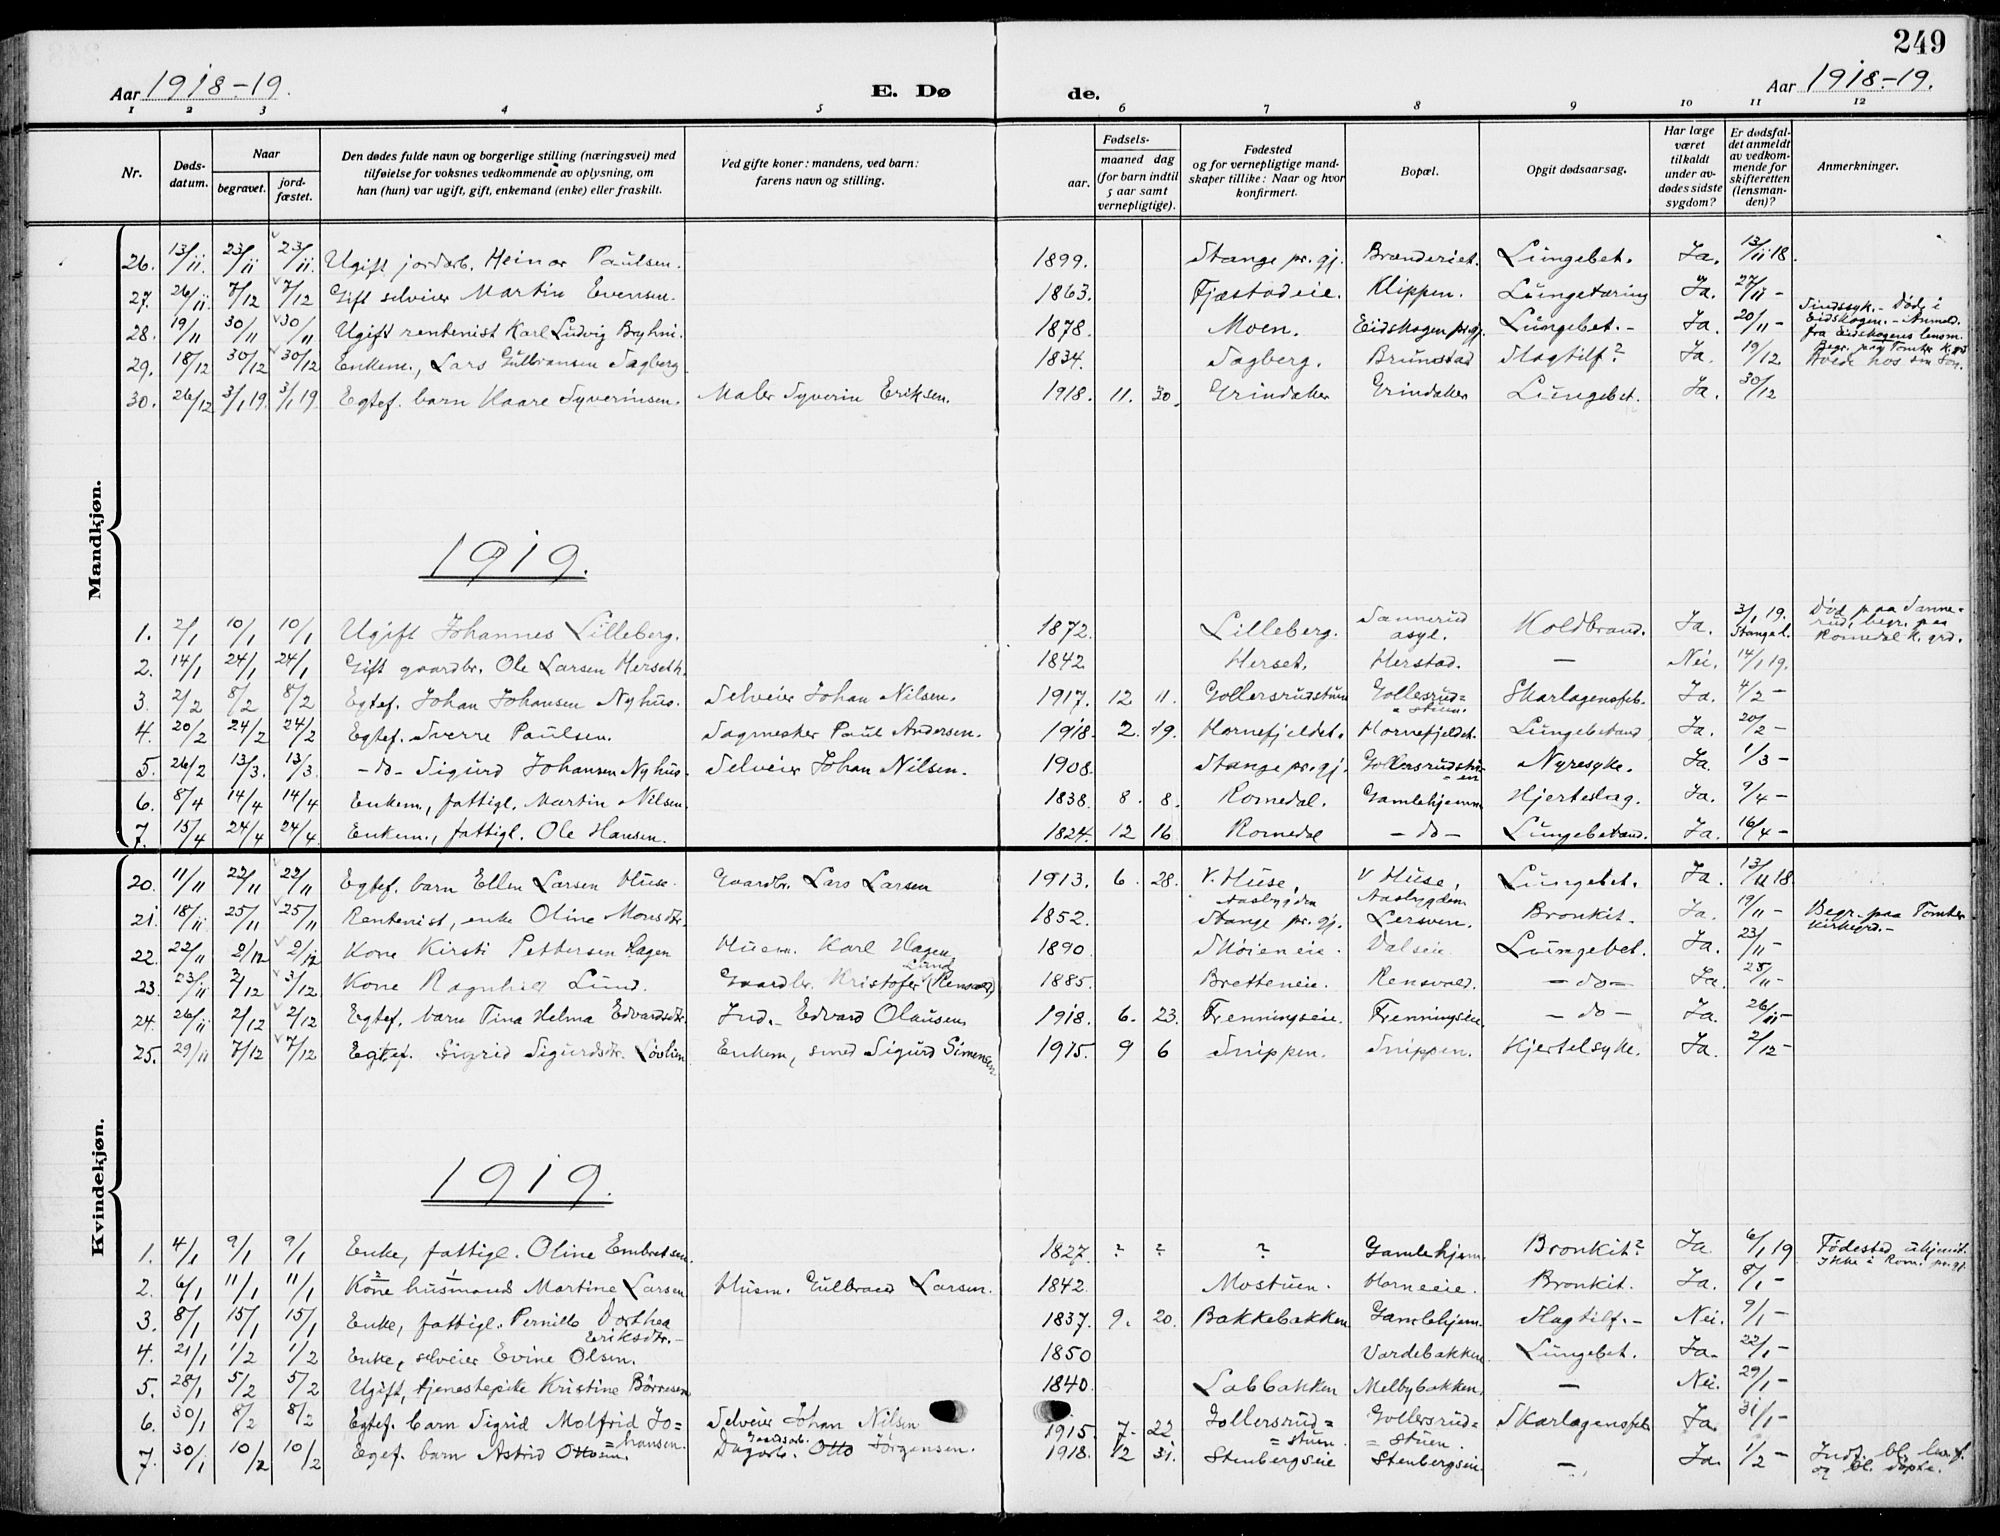 249
Aar 1918-19. E. Dø de. Aar 1918-19.
1 2 3 4 5 6 7 8 9 10 11 12
Nr. Døds-datum. Naar begravet. jord-fæstet. Den dødes fulde navn og borgerlige stilling (næringsvei) med tilføielse for voksnes vedkommende av oplysning, om han (hun) var ugift, gift, enkemand (enke) eller fraskilt. Ved gifte koner: mandens, ved barn: farens navn og stilling. Fødsels- aar. maaned dag (for barn indtil 5 aar samt vernepligtige). Fødested og for vernepligtige mand-skaper tillike: Naar og hvor konfirmert. Bopæl. Opgit dødsaarsag. Har læge været tilkaldt under av-dødes sidste sygdom? Er dødsfal-det anmeldt av vedkom-mende for skifteretten (lensman-den)? Anmerkninger.
Mandkjøn.
26. 13/11. 23/11 23/11. Ugift jordarb. Heinar Paulsen. 1899. Stange pr.gj. Brænderiet. Lungebet. Ja. 13/11 18.
27. 26/11. 7/12 7/12 Gift selveier Martin Evensen. 1863. Fjæstadeie. Klippen. Lungetæring Ja. 27/11 -
28. 19/11 30/11 30/11 Ugift rentenist Karl Ludvig Bryhni. 1878. Moen. Eidskogen pr.gj. Lungebet. - Ja. 20/11 - Sindssyk. - Død i Eidskogen. - Anmeld. fra Eidskogens lensm. Begr. paa Tomter K.grd
29. 18/12 30/12 30/12 Enkem., Lars Gulbransen Sagberg 1834. Sagberg. Brunstad Slagtilf? Ja. 19/12 hos sin Søn.
30. 26/12 3/1 19. 3/1 19. Egtef. barn Kaare Syverinsen. Maler Syverin Eriksen. 1918. 11. 30. Grindaker Grindaker Lungebet. Ja. 30/12
1919.
1. 2/1 10/1 10/1 Ugift Johannes Lilleberg. 1872. Lilleberg. Sannerud asyl. Koldbrand. Ja. 3/1 19. Stange l. Død paa Sanne-rud, begr. paa Romedal K.grd.
2. 14/1 24/1 24/1 Gift gaardbr. Ole Larsen Herseth. 1842 Herset. Herstad. — Nei. 14/1 19.
3. 2/2 8/2 8/2 Egtef. Johan Johansen Nyhus. Selveier Johan Nilsen. 1917. 12 11. Gollersrudstuen Gollersrud= =stuen. Skarlagensfeb. Ja. 4/2 -
4. 20/2 24/2 24/2 Egtef. Sverre Paulsen. Sagmester Paul Andersen. 1918. 2. 19. Hornefjeldet. Hornefjeldet. Lungebetænd. Ja. 20/2 -
5. 26/2 13/3. 13/3. -do- Sigurd Johansen Nyhus. Selveier Johan Nilsen. 1908. Stange pr.gj. Gollersrudstu= =en Nyresyke. Ja. 1/3 -
6. 8/4 14/4 14/4 Enkem., fattigl. Martin Nilsen. 1838. 8. 8. Romedal. Gamlehjemm. Hjerteslag. Ja. 9/4 -
7. 15/4 24/4 24/4. Enkem., fattigl. Ole Hansen. 1824. 12 16. Romedal -do- Lungebetænd. Ja. 16/4 -
Kvindekjøn.
20. 11/11 22/11 22/11 Egtef. barn Ellen Larsen Huse. Gaardbr. Lars Larsen 1913. 6. 28. V. Huse, Aasbygden V Huse, Aasbygden Lungebet. Ja. 13/11 18.
21. 18/11 25/11 25/11 Rentenist, enke Oline Monsdtr. 1852. Stange pr. gj. Lersven. Bronkit. Ja. 19/11 - Begr. paa Tomter Kirkegrd. -
22. 22/11 2/12 2/12 Kone Kirsti Pettersen Hagen Husm. Karl Hagen 1890. Skøieneie. Valseie. Lungebet. Ja. 23/11 -
23. 23/11 3/12 3/12 Kone Ragnhild Lund. Gaardbr. Kristofer Lund (Rensvold) 1885. Bretteneie. Rensvold. -do- Ja. 25/11 -
24. 26/11 2/12 2/12 Egtef. barn Tina Helma Edvardsdtr. Ind. - Edvard Olausen 1918. 6. 23. Frenningseie. Frenningseie. -do- Ja. 26/11 -
25. 29/11 7/12 7/12 Egtef. Sigrid Sigurdsdtr. Løvlien Enkem, smed Sigurd Simensen 1915. 9 6 Snippen. Snippen. Hjertelsyke. Ja. 2/12 -
1919.
1. 4/1 9/1 9/1 Enke, fattigl. Oline Embretsen 1827. ? ? ? Gamlehjem. Bronkit? Ja 6/1 19 Fødested ukjendt. Ikke i Rom. pr.gj.
2. 6/1 11/1 11/1 Kone husmands Martine Larsen Husm. Gulbrand Larsen. 1842. Mostuen. Horneeie. Bronkit. Ja. 8/1 -
3. 8/1 15/1 15/1 Enke, fattigl. Pernille Dorthea Eriksdtr. - 1837. 9. 20. Bakkebakken Gamlehjem. Slagtilf. - Nei. 9/1 -
4. 21/1 1/2 1/2 Enke, selveier Evine Olsen. 1850 Vardebakken Lungebet. Ja. 22/1 -
5. 28/1 5/2 5/2 Ugift, tjenestepike Kristine Børresen 1840. Labbakken Melbybakken. — Nei. 29/1 -
6. 30/1 8/2 8/2 Egtef. barn Sigrid Molfrid Jo= =hansen. Selveier Johan Nilsen 1915. 7. 22 Gollersrud= =stuen. Gollersrud= =stuen. Skarlagensfeb. Ja. 31/1 -
7. 30/1 10/2 10/2 Egtef. barn Astrid Ottosen. Dagarb. Gaardsarb. Otto Jørgensen. 1918. 12 31. Stenbergseie Stenbergseie. — Ja. 1/2 - Indf. bl. lev. f. og bl. døpte.